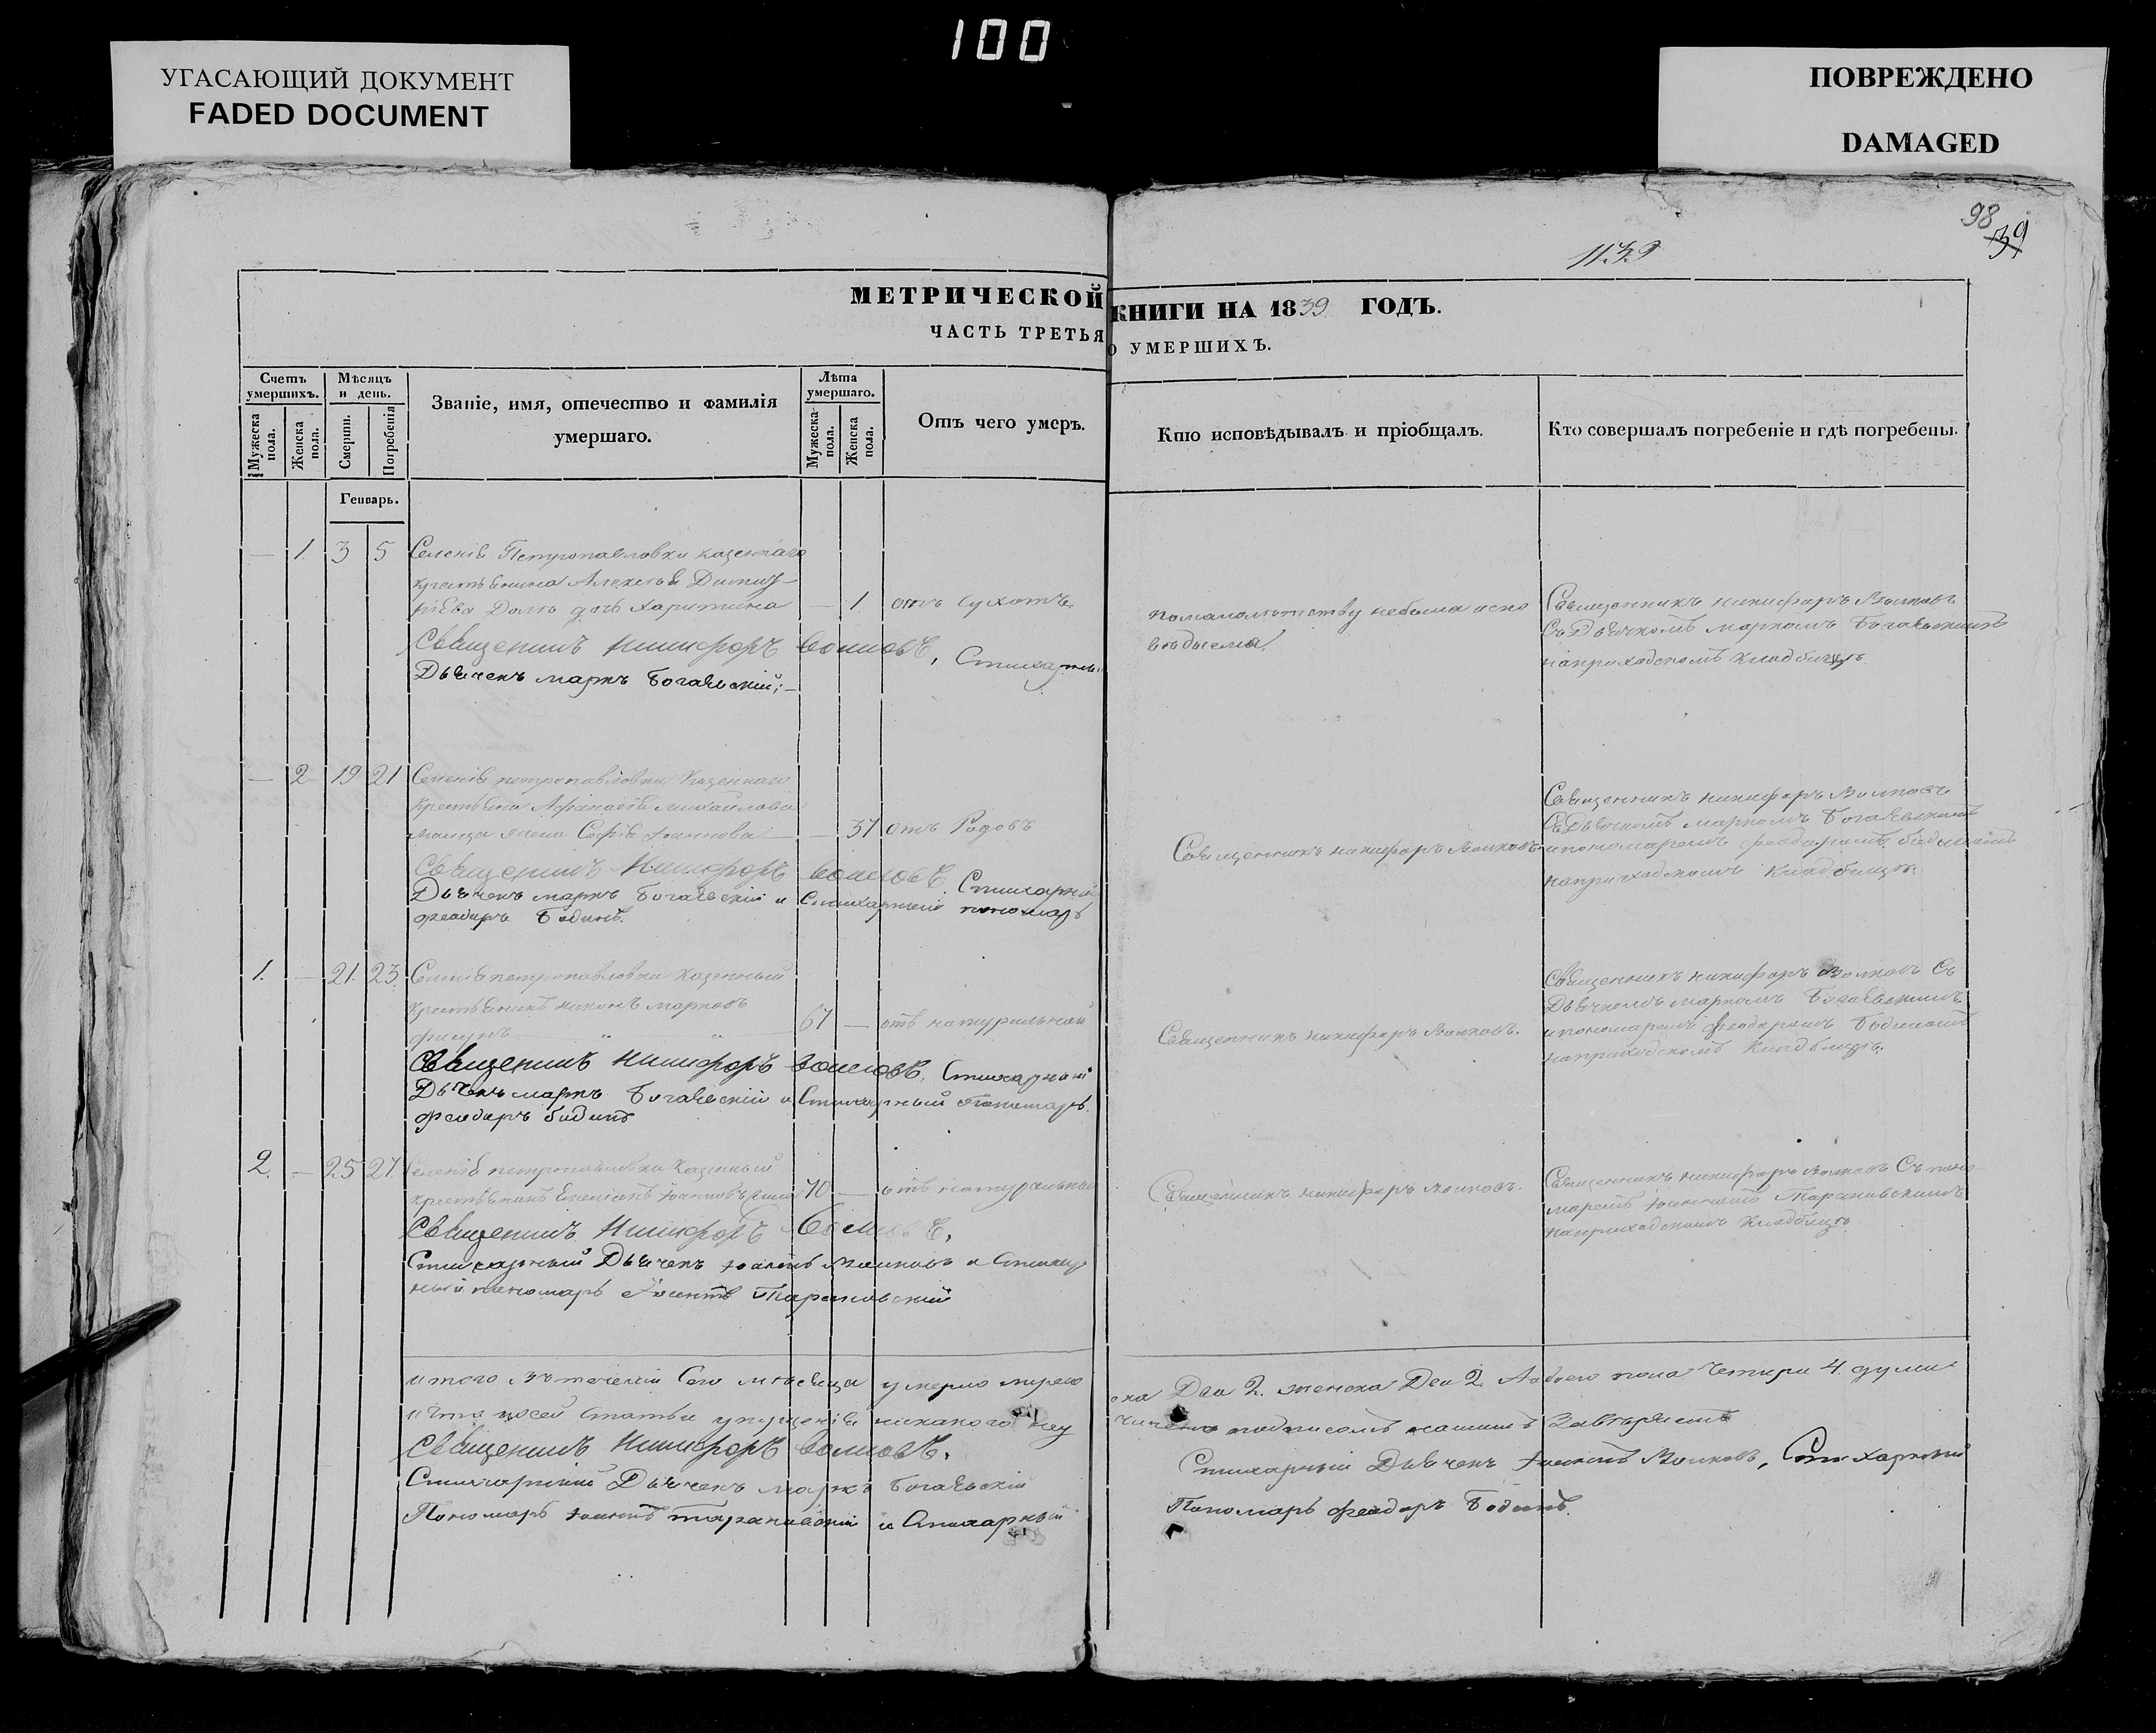 100
УГАСАЮЩИЙ ДОКУМЕНТ
FADED DOCUMENT
ПОВРЕЖДЕНО
DAMAGED
98
39
1139
МЕТРИЧЕСКОЙ КНИГИ НА 1839 ГОДЪ.
ЧАСТЬ ТРЕТЬЯ О УМЕРШИХЪ.
Счетъ умершихъ.
Мужеска пола.
Женска пола.
Мѣсяцъ и день.
Смерти.
Погребенія
Званіе, имя, отечество и фамилія
умершаго.
Лѣта умершаго.
Мужеска пола.
Женска пола.
Отъ чего умеръ.
Кто исповѣдывалъ и пріобщалъ.
Кто совершалъ погребеніе и гдѣ погребены.
Генварь.
— 1. 3 5 Селенія Петропавловки казеннаго
крестьянина Алексея Дмит
ріева дочь Харитина — 1 отъ сухотъ
помалолетству небыла испо
ведыема
Священникъ Никифоръ Волковъ
съ Дьячкомъ Маркомъ Богаевскимъ
наприходскомъ кладбищѣ
Священникъ Никифоръ Волковъ, Стихарный
Дьячекъ Маркъ Богаевскій;
— 2 19 21 Селенія петропавловки Казеннаго
крестьянина Афанасія Михайлова
жена Софія Іоаннова — 37 отъ Родовъ
Священникъ Никифоръ Волковъ
Священникъ Никифоръ Волковъ
съ Дьячкомъ Маркомъ Богаевскимъ
и пономаремъ Феодоромъ Бодинымъ
наприходскомъ Кладбищѣ
Священникъ Никифоръ Волковъ, Стихарный
Дьячекъ Маркъ Богаевскій и Стихарный пономарь
Феодоръ Бодинъ.
1. — 21. 23. Селенія петропавловки казенный
крестьянинъ Никонъ Марковъ
67 — отъ натуральной
Священникъ Никифоръ Волковъ.
Священникъ Никифоръ Волковъ съ
Дьячкомъ Маркомъ Богаевскимъ
и пономаремъ Феодоромъ Бодинымъ
наприходскомъ Кладбищѣ.
Священникъ Никифоръ Волковъ, Стихарный
Дьячекъ Маркъ Богаевскій и Стихарный Пономарь
Феодоръ Бодинъ
2. — 25 27. Селенія петропавловки Казенный
крестьянинъ Іоанновъ 70 — отъ натуральной
Священникъ Никифоръ Волковъ.
Священникъ Никифоръ Волковъ съ поно
маремъ Іоанномъ Тарановскимъ
наприходскомъ Кладбищѣ
Священникъ Никифоръ Волковъ,
Стихарный Дьячекъ Іоаннъ Волковъ и Стихар
ный пономарь Іоаннъ Тарановскій
итого въ теченіи Сего месяца умерло мужес ска Два 2. женска Два 2. Аобоего пола Четыри 4. души
и что посей статьи упущенія никакого неу чинено подписомъ нашимъ Завѣряемъ
Священникъ Никифоръ Волковъ.
Стихарный Дьячекъ Іоаннъ Волковъ, Стихарный
Стихарный Дьячекъ Маркъ Богаевскій
Пономарь Іоаннъ Тарановскій и Стихарный
Пономарь Феодоръ Бодинъ.